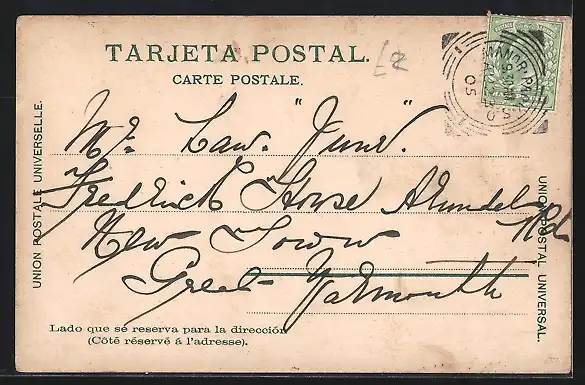 TARJETA POSTAL.
CARTE POSTALE.
MANOR PARK
S.O
05
Mr. Law. "Junr."
Fredrick House Arundel Rd
New Town
Great Yarmouth
UNION POSTALE UNIVERSELLE.
UNION POSTAL UNIVERSAL.
Lado que se reserva para la dirección
(Côté réservé á l'adresse).